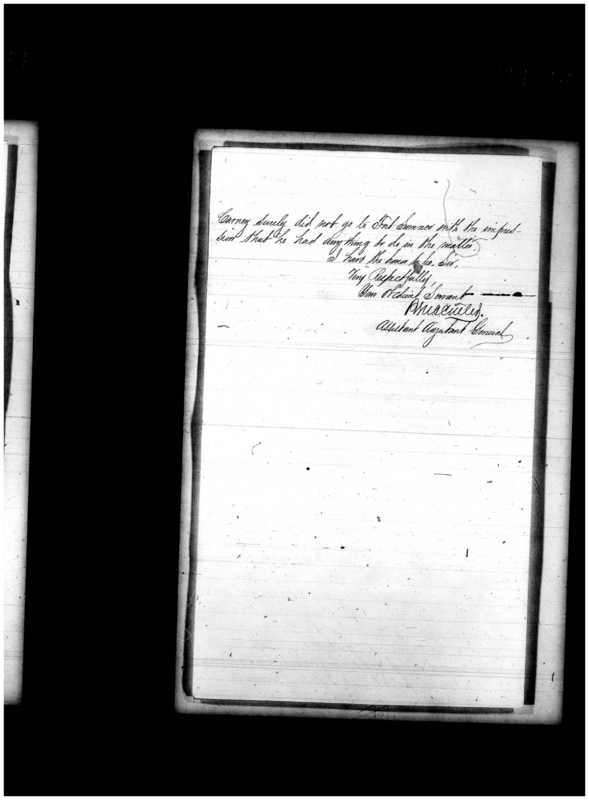 Carney surely did not go to Fort Sumner with the impres-
sion that he had anything to do, in the matter
I have the honor to be, Sir,
Very Respectfully,
Your Obedient Servant
Assistant Adjutant General